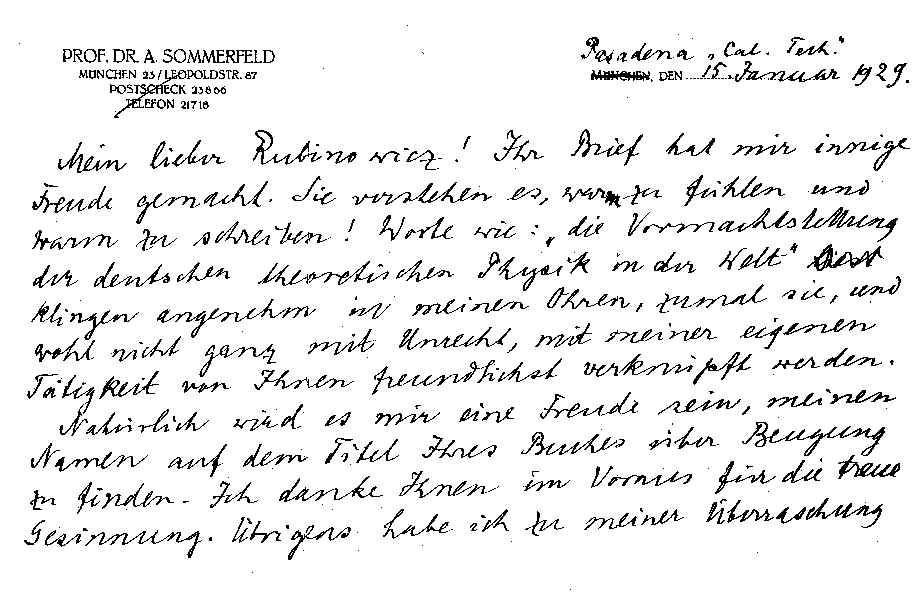 PROF. DR. A. SOMMERFELD
MÜNCHEN 23 / LEOPOLDSTR. 87
POSTSCHECK 23866
TELEFON 21716
Pasadena „Cal. Tech."
MÜNCHEN, DEN 15. Januar 1929.
Mein lieber Rubinowicz! Ihr Brief hat mir innige
Freude gemacht. Sie verstehen es, warm zu fühlen und
warm zu schreiben! Worte wie: „die Vormachtstellung
der deutschen theoretischen Physik in der Welt"
klingen angenehm in meinen Ohren, zumal sie, und
wohl nicht ganz mit Unrecht, mit meiner eigenen
Tätigkeit von Ihnen freundlichst verknüpft werden.
Natürlich wird es mir eine Freude sein, meinen
Namen auf dem Titel Ihres Buches über Beugung
zu finden. Ich danke Ihnen im Voraus für die treue
Gesinnung. Übrigens habe ich zu meiner Überraschung